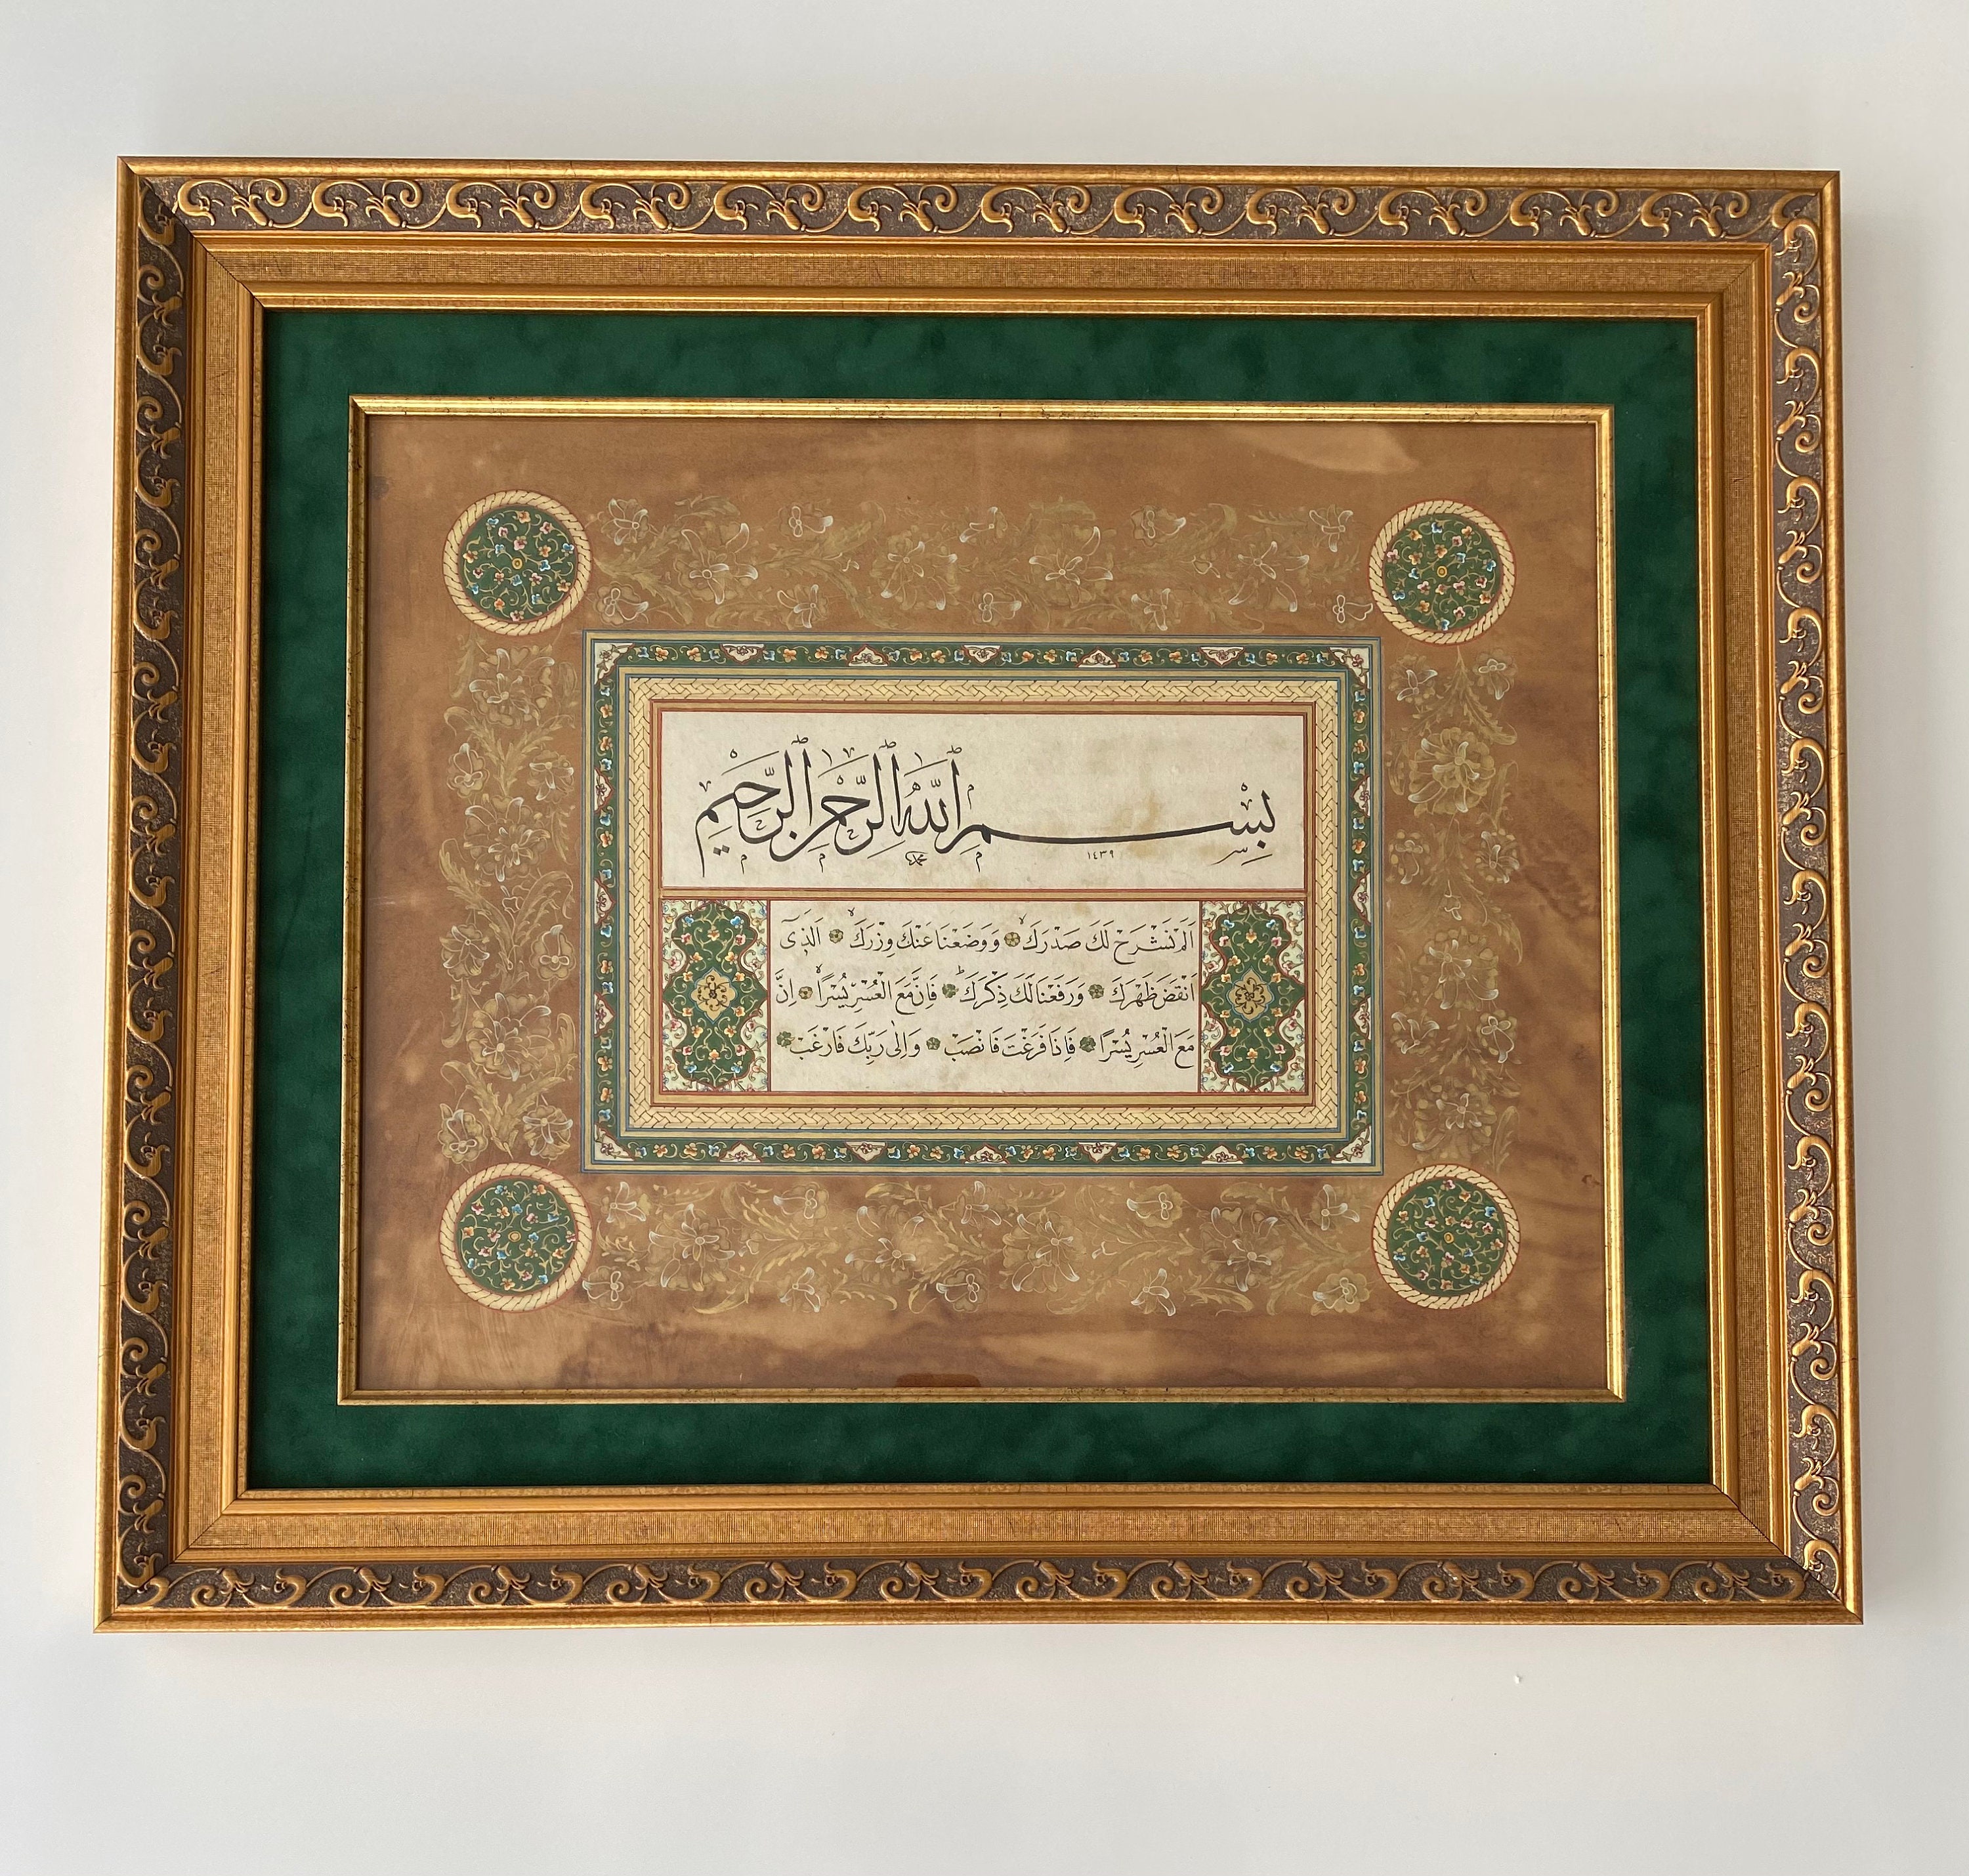 بِسْمِ اللّٰهِ الرَّحْمٰنِ الرَّحِيْمِ
١٤٣٩
محمد
اَلَمْ نَشْرَحْ لَكَ صَدْرَكَ وَوَضَعْنَا عَنْكَ وِزْرَكَ اَلَّذِى
اَنْقَضَ ظَهْرَكَ وَرَفَعْنَا لَكَ ذِكْرَكَ فَاِنَّ مَعَ الْعُسْرِ يُسْرًا اِنَّ
مَعَ الْعُسْرِ يُسْرًا فَاِذَا فَرَغْتَ فَانْصَبْ وَاِلٰى رَبِّكَ فَارْغَبْ